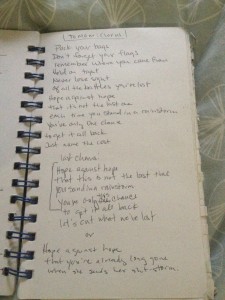 Pack your bags
Don't forget your flags
Remember where you came from
Hold on tight
Never lose sight
Of all the battles you've lost
Hope against hope
that it's not the last one
each time you stand in a rainstorm
you're only one chance
to get it all back
Just name the cost
last chorus:
Hope against hope
that this is not the last time
you stand in a rainstorm
chance
to get it all back
Let's eat what we've let
or
Hope against hope
that you're already long gone
when she sends her shit-storm.